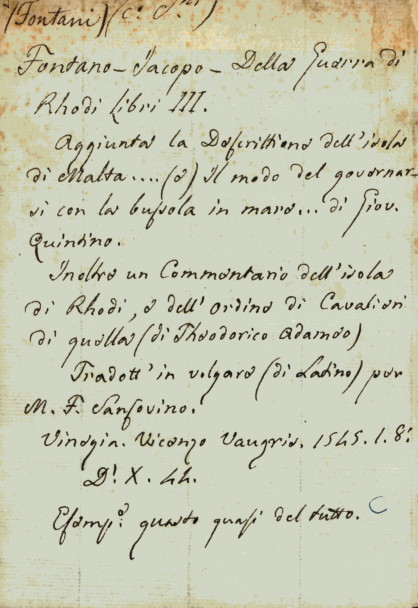 (Fontani)
Fontano - Jacopo - Della Guerra di
Rhodi Libri III.
Aggiunta la Descrittione dell'isola
di Malta.... (e) il modo del governar-
si con la bussola in mare... di Giov.
Quintino.
Inoltre un Commentario dell'isola
di Rhodi, e dell'ordine di Cavalieri
di quella (di Theodorico Adameo)
Tradott' in volgare (di Latino) per
M. F. Sansovino.
Vinegia. Vicenzo Vaugris. 1545. 1. 8:
D! X. 44.
Esemp.o quasi del tutto.